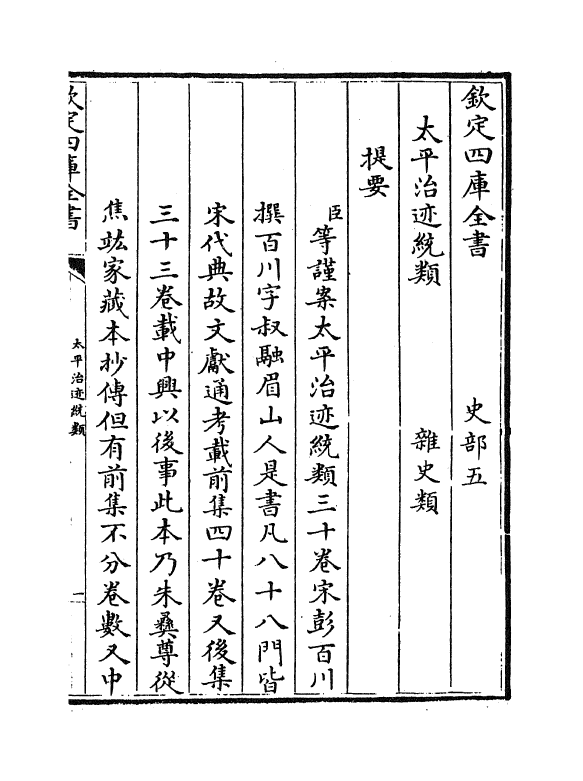 欽定四庫全書 史部五
太平治迹統類 雜史類
提要
臣等謹案太平治迹統類三十卷宋彭百川
撰百川字叔融眉山人是書凡八十八門皆
宋代典故文獻通考載前集四十卷又後集
三十三卷載中興以後事此本乃朱彝尊從
焦竑家藏本抄傳但有前集不分卷數又中
欽定四庫全書
太平治迹統類
一